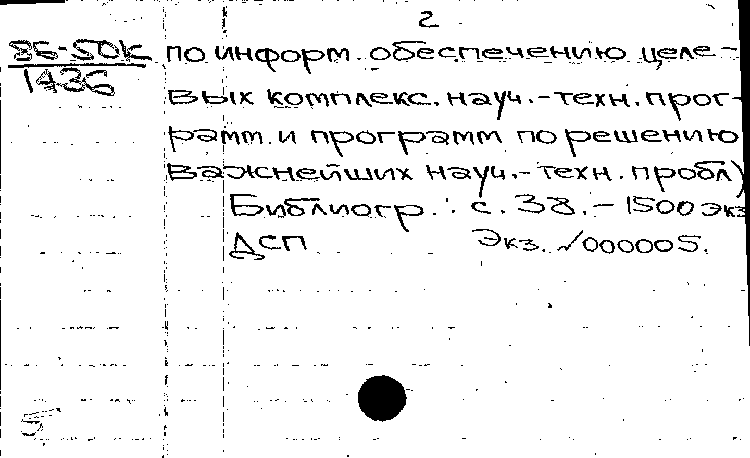 2
85-50К
1436
по информ. обеспечению целе-
вых комплекс. науч.-техн. прог-
рамм. и программ по решению
важнейших науч.-техн. пробл)
Библиогр.: с. 38. – 1500 экз
ДСП Экз. №000005.
5